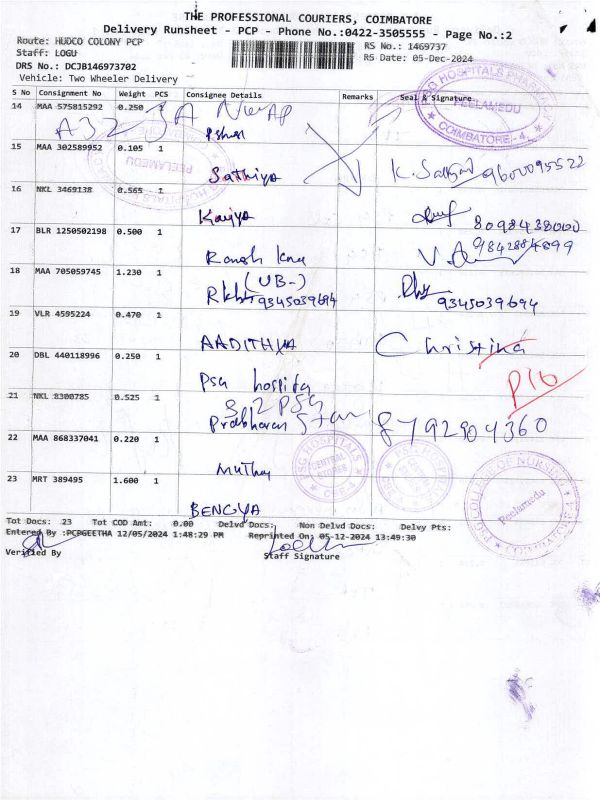 THE PROFESSIONAL COURIERS, COIMBATORE
Delivery Runsheet - PCP - Phone No.:0422-3505555 - Page No.:2
Route: HUDCO COLONY PCP
Staff: LOGU
DRS No.: DCJB146973702
Vehicle: Two Wheeler Delivery
RS No.: 1469737
RS Date: 05-Dec-2024
S No Consignment No Weight PCS Consignee Details Remarks Seal & Signature
14 MAA 575815292 0.250 1
PSG HOSPITALS PHARMACY
PEELAMEDU
COIMBATORE-4.
15 MAA 302589952 0.105 1 Sathiya 9600095522
PEELAMEDU
16 NKL 3469138 0.565 1 Kaviya 8098438000
17 BLR 1250502198 0.500 1 9842884899
18 MAA 705059745 1.230 1 (UB-) 9345039694 9345039694
19 VLR 4595224 0.470 1 AADITHYA Christina
20 DBL 440118996 0.250 1 PSG hospita
21 NKL 8300785 0.525 1 Prabharan 8792904360
22 MAA 868337041 0.220 1 Muthu
PSG HOSPITALS
CENTRAL STORES
CBE-4
23 MRT 389495 1.600 1
P.S.G. COLLEGE OF NURSING
Peelamedu
COIMBATORE
Tot Docs: 23 Tot COD Amt: 0.00 Delvd Docs: Non Delvd Docs: Delvy Pts:
Entered By :PCPGEETHA 12/05/2024 1:48:29 PM Reprinted On: 05-12-2024 13:49:30
Verified By Staff Signature